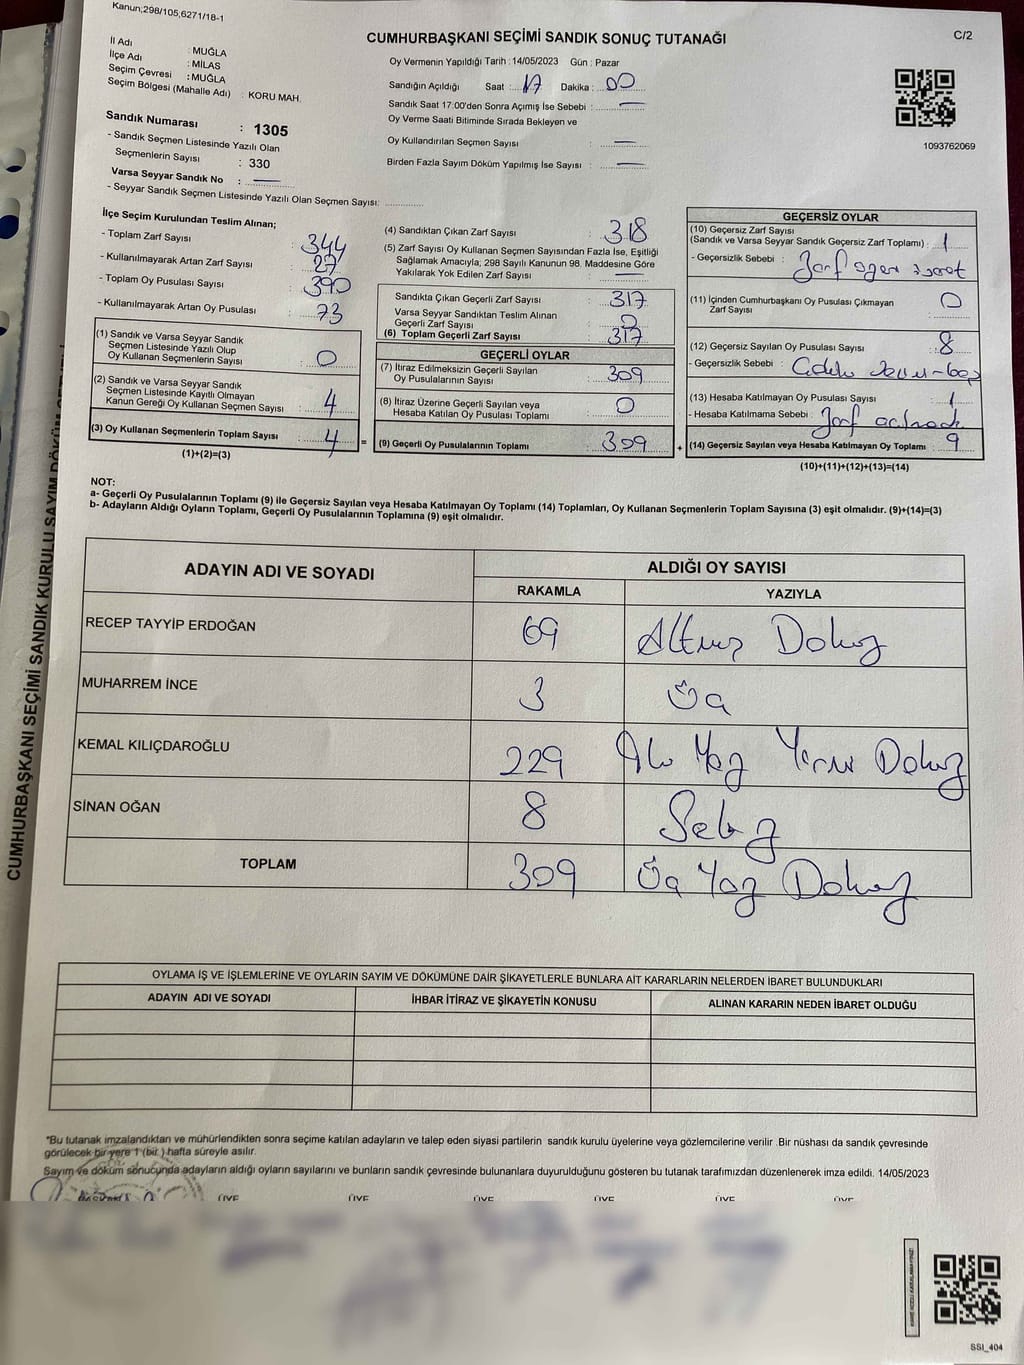 Kanun;298/105,6271/18-1
C/2
CUMHURBAŞKANI SEÇİMİ SANDIK SONUÇ TUTANAĞI
İl Adı : MUĞLA
İlçe Adı : MİLAS
Seçim Çevresi : MUĞLA
Seçim Bölgesi (Mahalle Adı) : KORU MAH.
Sandık Numarası : 1305
- Sandık Seçmen Listesinde Yazılı Olan
Seçmenlerin Sayısı : 330
Varsa Seyyar Sandık No :
- Seyyar Sandık Seçmen Listesinde Yazılı Olan Seçmen Sayısı:
Oy Vermenin Yapıldığı Tarih :14/05/2023 Gün : Pazar
Sandığın Açıldığı Saat : 17 Dakika : 00
Sandık Saat 17:00'den Sonra Açımış İse Sebebi : —
Oy Verme Saati Bitiminde Sırada Bekleyen ve
Oy Kullandırılan Seçmen Sayısı : —
Birden Fazla Sayım Döküm Yapılmış İse Sayısı : —
1093762069
İlçe Seçim Kurulundan Teslim Alınan;
- Toplam Zarf Sayısı : 344
- Kullanılmayarak Artan Zarf Sayısı : 27
- Toplam Oy Pusulası Sayısı : 390
- Kullanılmayarak Artan Oy Pusulası : 73
(1) Sandık ve Varsa Seyyar Sandık
Seçmen Listesinde Yazılı Olup
Oy Kullanan Seçmenlerin Sayısı : 0
(2) Sandık ve Varsa Seyyar Sandık
Seçmen Listesinde Kayıtlı Olmayan
Kanun Gereği Oy Kullanan Seçmen Sayısı : 4
(3) Oy Kullanan Seçmenlerin Toplam Sayısı : 4 =
(1)+(2)=(3)
(4) Sandıktan Çıkan Zarf Sayısı : 318
(5) Zarf Sayısı Oy Kullanan Seçmen Sayısından Fazla İse, Eşitliği
Sağlamak Amacıyla, 298 Sayılı Kanunun 98. Maddesine Göre
Yakılarak Yok Edilen Zarf Sayısı : —
Sandıkta Çıkan Geçerli Zarf Sayısı : 317
Varsa Seyyar Sandıktan Teslim Alınan
Geçerli Zarf Sayısı : 0
(6) Toplam Geçerli Zarf Sayısı : 317
GEÇERLİ OYLAR
(7) İtiraz Edilmeksizin Geçerli Sayılan
Oy Pusulalarının Sayısı : 309
(8) İtiraz Üzerine Geçerli Sayılan veya
Hesaba Katılan Oy Pusulası Toplamı : 0
(9) Geçerli Oy Pusulalarının Toplamı : 309 +
GEÇERSİZ OYLAR
(10) Geçersiz Zarf Sayısı
(Sandık ve Varsa Seyyar Sandık Geçersiz Zarf Toplamı) : 1
- Geçersizlik Sebebi : Zarf
(11) İçinden Cumhurbaşkanı Oy Pusulası Çıkmayan
Zarf Sayısı : 0
(12) Geçersiz Sayılan Oy Pusulası Sayısı : 8
- Geçersizlik Sebebi :
(13) Hesaba Katılmayan Oy Pusulası Sayısı : 1
- Hesaba Katılmama Sebebi : Zarf
(14) Geçersiz Sayılan veya Hesaba Katılmayan Oy Toplamı : 9
(10)+(11)+(12)+(13)=(14)
NOT:
a- Geçerli Oy Pusulalarının Toplamı (9) ile Geçersiz Sayılan veya Hesaba Katılmayan Oy Toplamı (14) Toplamları, Oy Kullanan Seçmenlerin Toplam Sayısına (3) eşit olmalıdır. (9)+(14)=(3)
b- Adayların Aldığı Oyların Toplamı, Geçerli Oy Pusulalarının Toplamına (9) eşit olmalıdır.
ADAYIN ADI VE SOYADI
ALDIĞI OY SAYISI
RAKAMLA YAZIYLA
RECEP TAYYİP ERDOĞAN 69 Altmış Dokuz
MUHARREM İNCE 3 Üç
KEMAL KILIÇDAROĞLU 229 İki Yüz Yirmi Dokuz
SİNAN OĞAN 8 Sekiz
TOPLAM 309 Üç Yüz Dokuz
OYLAMA İŞ VE İŞLEMLERİNE VE OYLARIN SAYIM VE DÖKÜMÜNE DAİR ŞİKAYETLERLE BUNLARA AİT KARARLARIN NELERDEN İBARET BULUNDUKLARI
ADAYIN ADI VE SOYADI İHBAR İTİRAZ VE ŞİKAYETİN KONUSU ALINAN KARARIN NEDEN İBARET OLDUĞU
*Bu tutanak imzalandıktan ve mühürlendikten sonra seçime katılan adayların ve talep eden siyasi partilerin sandık kurulu üyelerine veya gözlemcilerine verilir .Bir nüshası da sandık çevresinde
görülecek bir yere 1 (bir ) hafta süreyle asılır.
Sayım ve döküm sonucunda adayların aldığı oyların sayılarını ve bunların sandık çevresinde bulunanlara duyurulduğunu gösteren bu tutanak tarafımızdan düzenlenerek imza edildi. 14/05/2023
ÜYE ÜYE ÜYE ÜYE ÜYE ÜYE
SSI_404